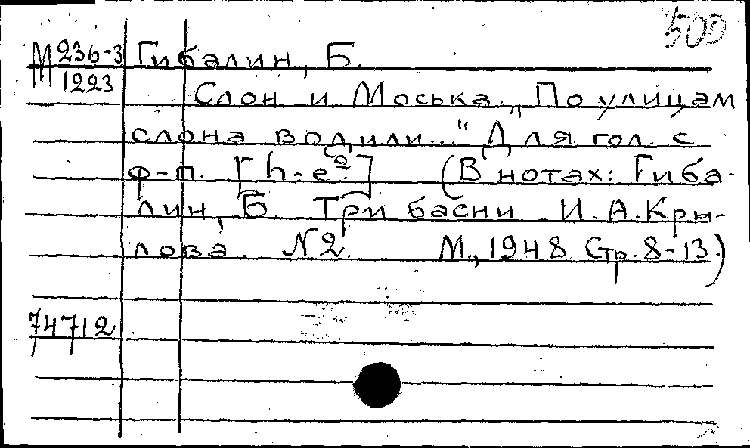 500
М 236-3
1223
Гибалин, Б.
Слон и Моська. „По улицам
слона водили..." Для гол. с
ф-п. [h-e²] (В нотах: Гиба-
лин, Б. Три басни И.А.Кры-
лова. №2. М., 1948 Стр. 8-13.)
74712